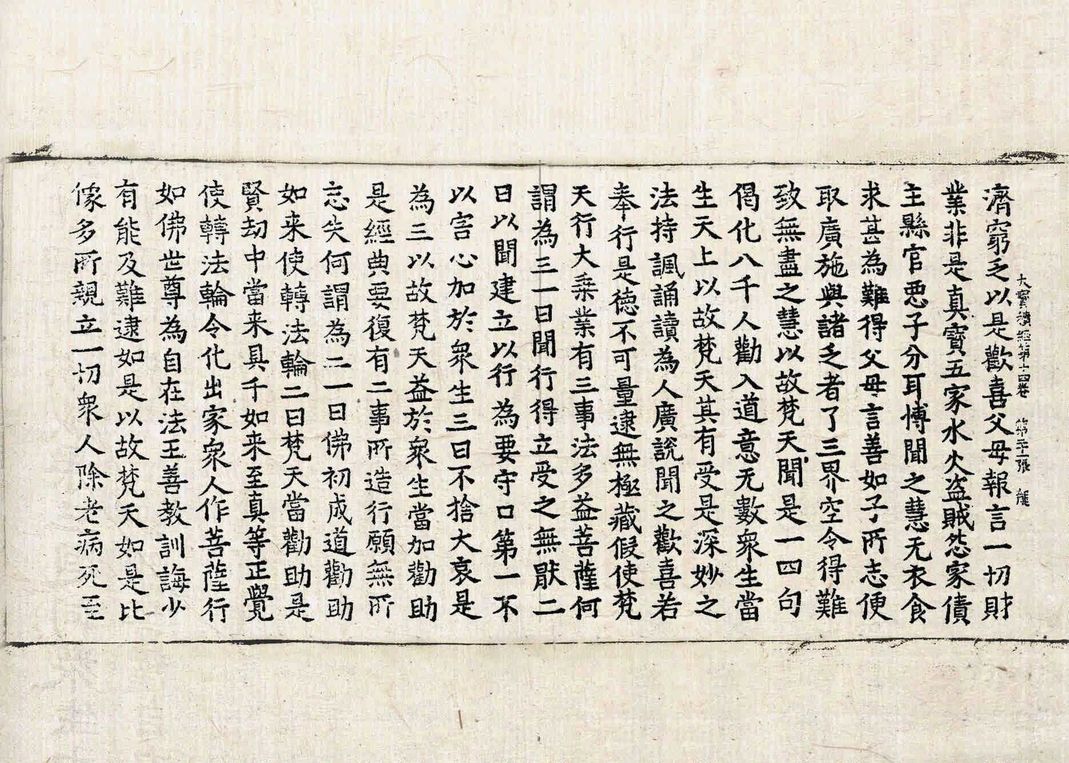 濟窮乏以是歡喜父母報言一切財
大寶積經第十四卷 第三十二張 龍
業非是真寶五家水火盗賊怨家債
主縣官惡子分耳博聞之慧无衣食
求甚為難得父母言善如子所志便
取廣施與諸乏者了三界空令得難
致無盡之慧以故梵天聞是一四句
偈化八千人勸入道意无數衆生當
生天上以故梵天其有受是深妙之
法持諷誦讀為人廣說聞之歡喜若
奉行是德不可量逮無極藏假使梵
天行大乗業有三事法多益菩薩何
謂為三一日聞行得立受之無猒二
日以聞建立以行為要守口第一不
以害心加於衆生三曰不捨大哀是
為三以故梵天益於衆生當加勸助
是經典要復有二事所造行願無所
忘失何謂為二一日佛初成道勸助
如来使轉法輪二曰梵天當勸助是
賢劫中當来具千如来至真等正覺
使轉法輪令化出家衆人作菩薩行
如佛世尊為自在法王善教訓誨少
有能及難逮如是以故梵天如是比
像多所親立一切衆人除老病死至